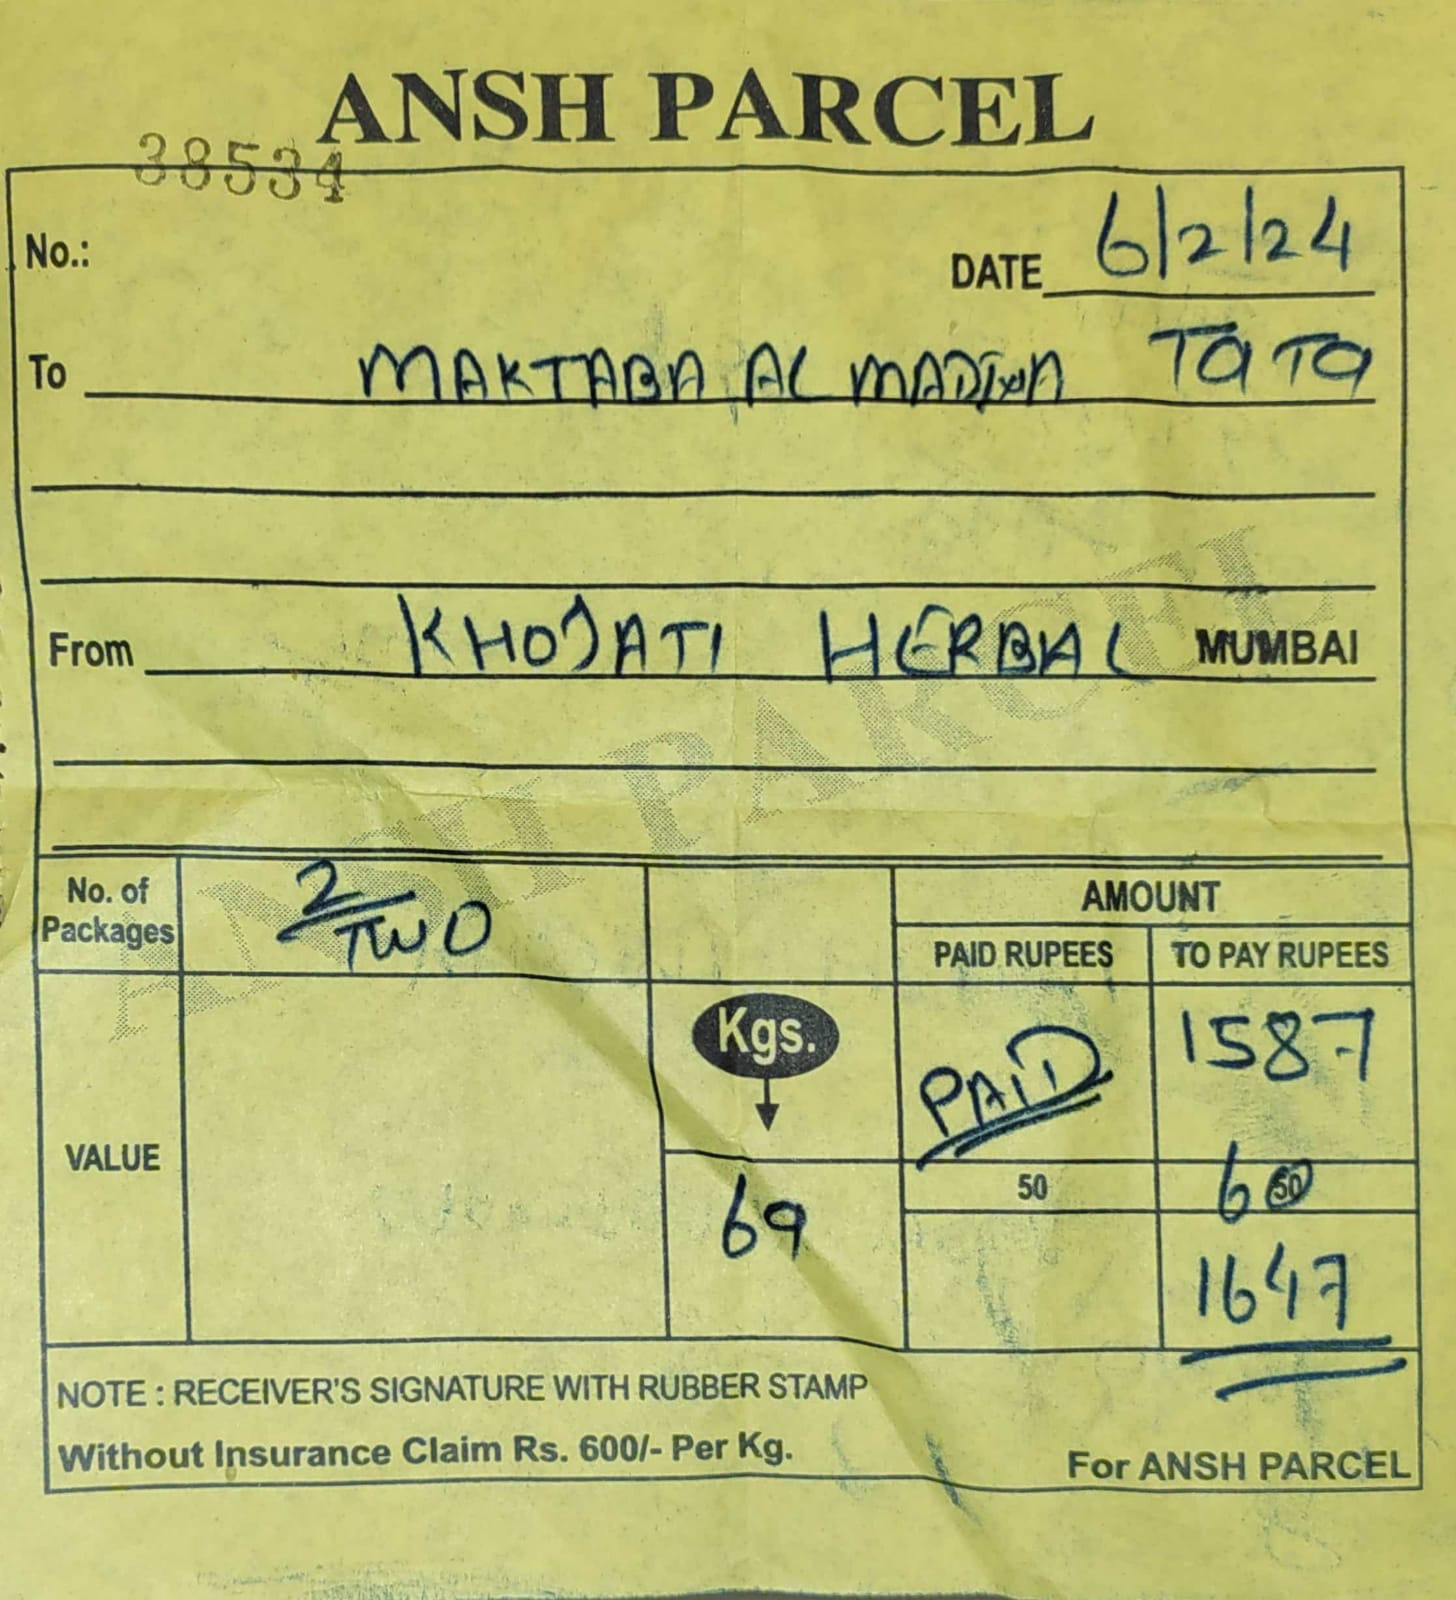 ANSH PARCEL
38534
No.:
DATE 6/2/24
To MAKTABA AL MADINA TATA
From KHOJATI HERBAL MUMBAI
ANSH PARCEL
No. of Packages 2/TWO
AMOUNT
PAID RUPEES TO PAY RUPEES
Kgs.
PAID 1587
VALUE
50 60
69
1647
NOTE : RECEIVER'S SIGNATURE WITH RUBBER STAMP
Without Insurance Claim Rs. 600/- Per Kg.
For ANSH PARCEL